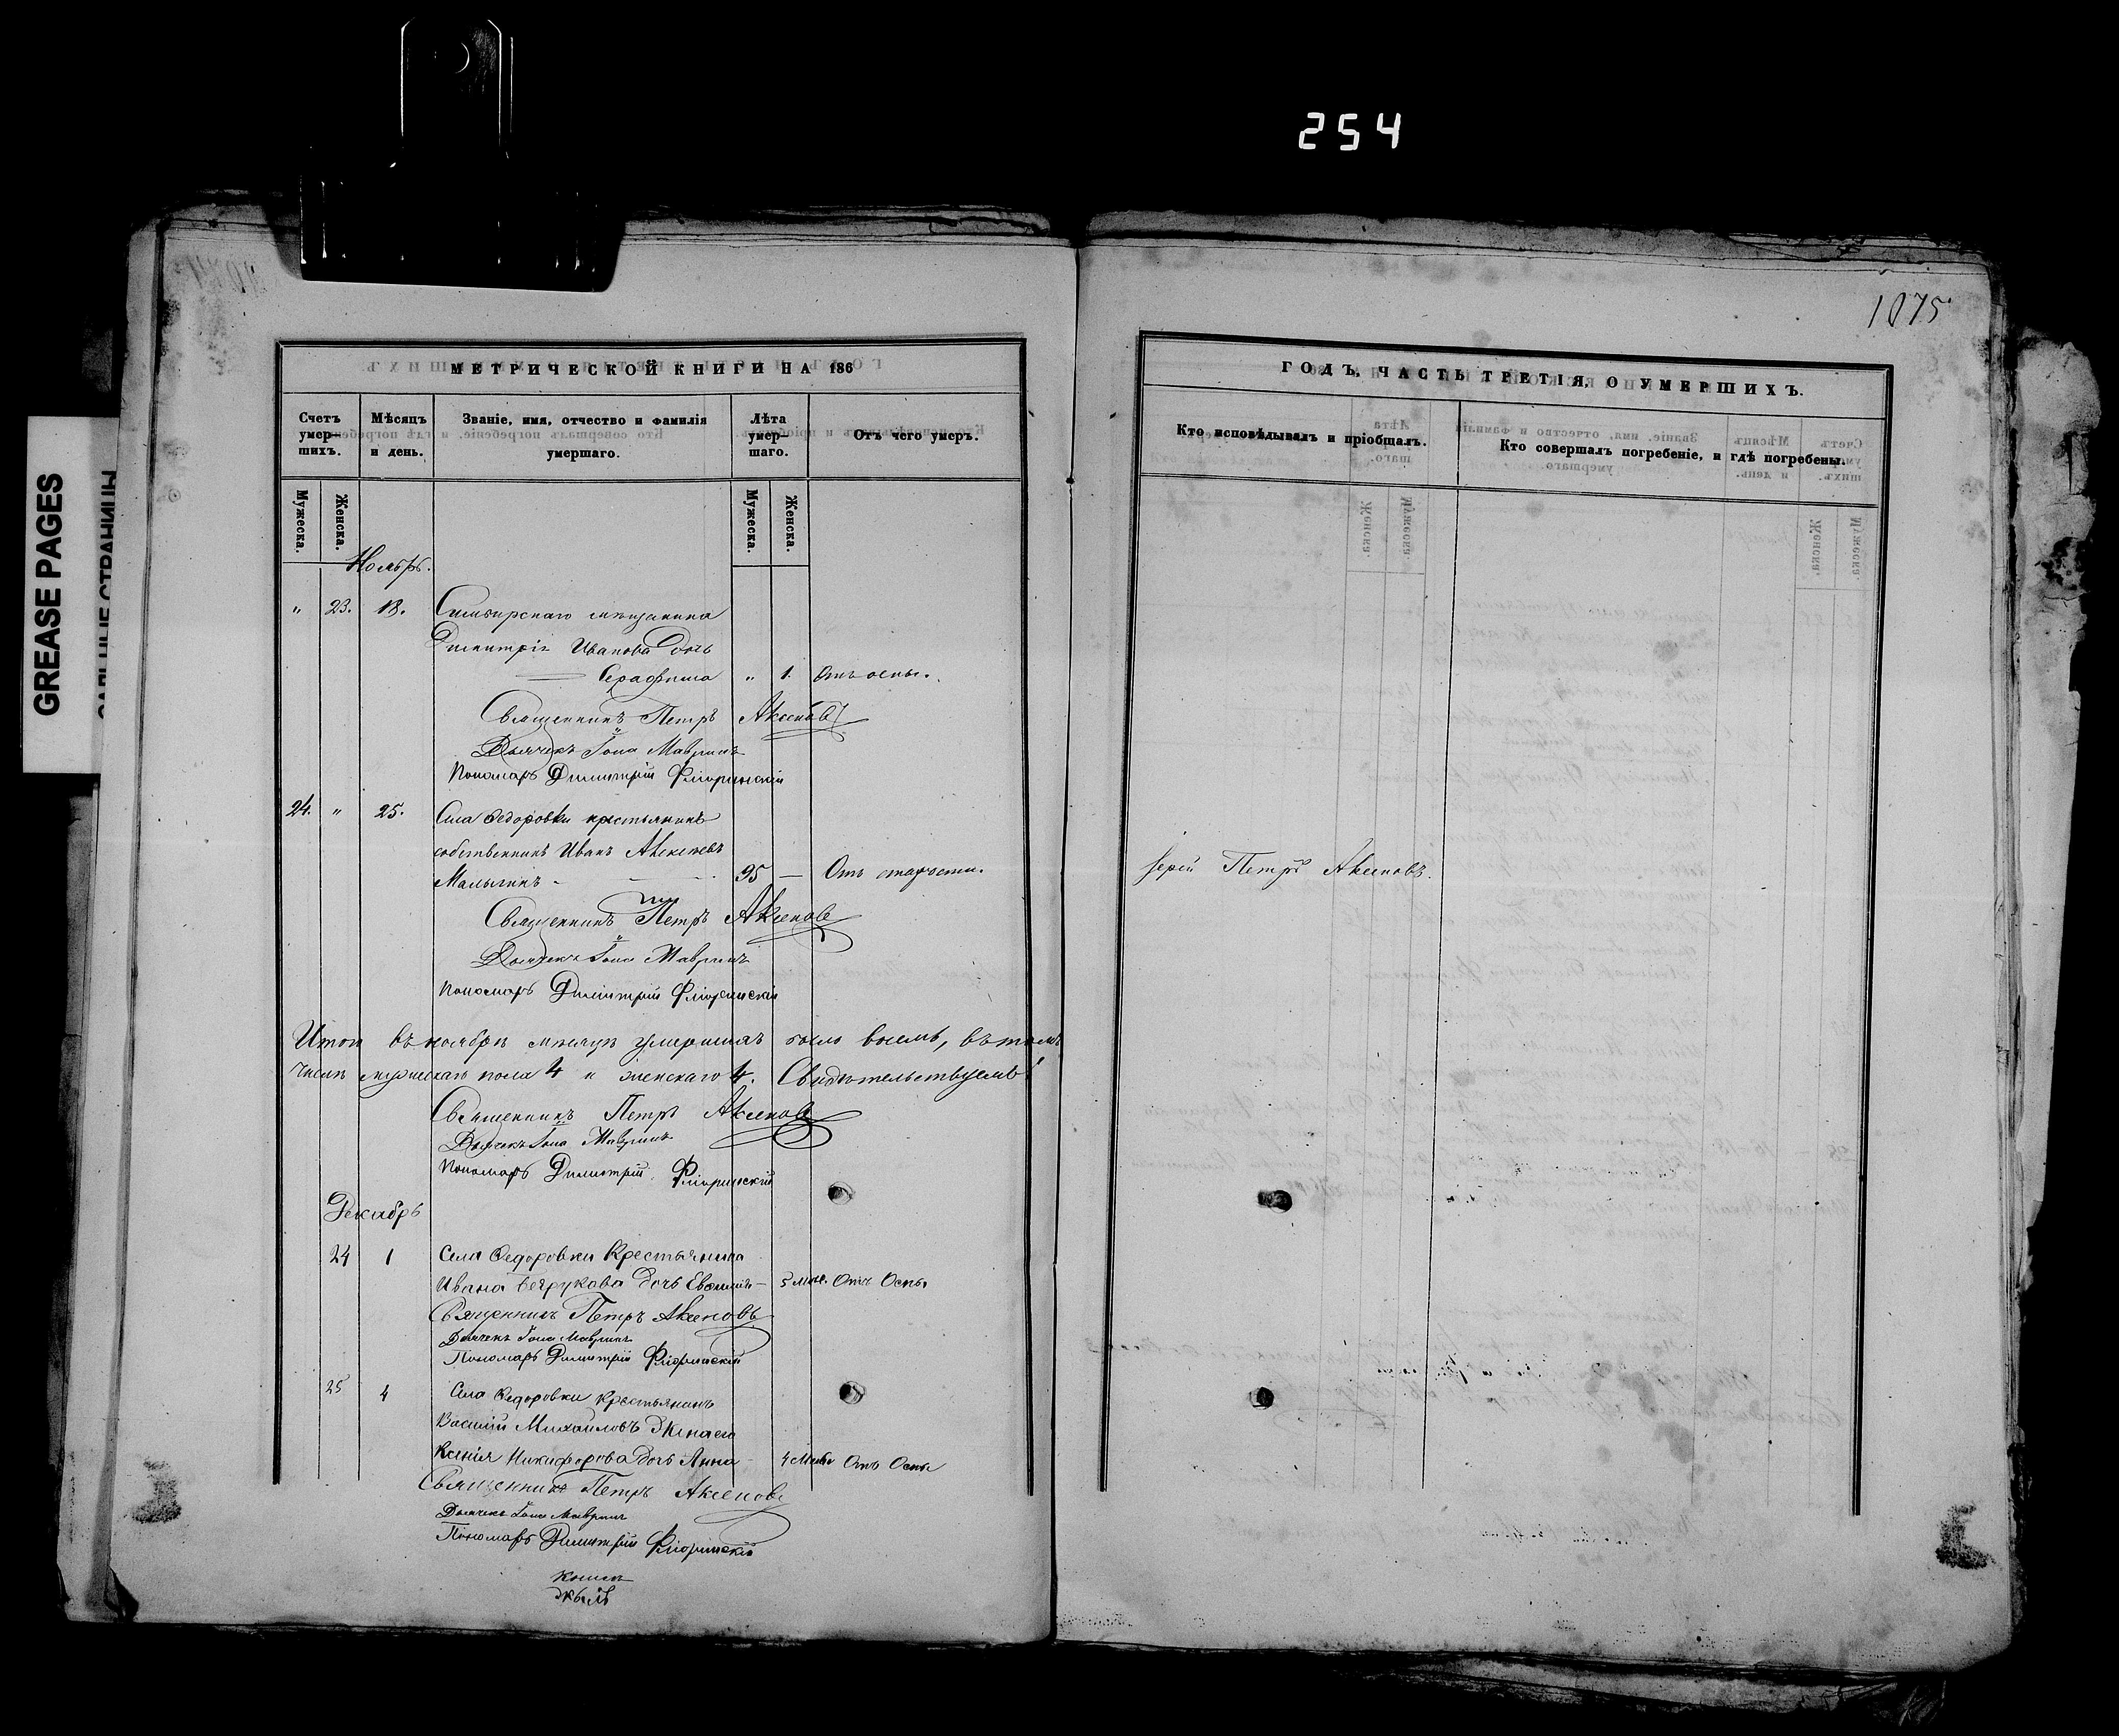 254
GREASE PAGES
1075
МЕТРИЧЕСКОЙ КНИГИ НА 186
Счетъ умер-шихъ.
Мѣсяцъ и день.
Званіе, имя, отчество и фамилія умершаго.
Лѣта умер-шаго.
Отъ чего умеръ.
Мужеска.
Женска.
Мужеска.
Женска.
Ноябрь.
" 23. 18. Симбирскаго мѣщанина
Димитрія Иванова дочь
Серафима " 1. Отъ оспы.
Священникъ Петръ Аксеновъ
Дьячекъ Іона Мавринъ
Пономарь Димитрій Фліоринскій
24. " 25. Села Федоровки крестьянинъ
собственникъ Иванъ Алексѣевъ
Малыгинъ - 95 — Отъ старости.
Священникъ Петръ Аксеновъ
Дьячекъ Іона Мавринъ
Пономарь Димитрій Фліоринскій
Итого въ ноябрѣ мѣсяцѣ умершихъ было восемь, въ томъ
числѣ мужескаго пола 4 и женскаго 4. Свидѣтельствуемъ:
Священникъ Петръ Аксеновъ
Дьячекъ Іона Мавринъ
Пономарь Димитрій Фліоринскій
Декабрь
24 1 Села Федоровки Крестьянина
Ивана дочь Евфимія - 3 мѣс. Отъ Оспы
Священникъ Петръ Аксеновъ
Дьячекъ Іона Мавринъ
Пономарь Димитрій Фліоринскій
25 4 Села Федоровки крестьянинъ
Василій Михайловъ Жена его
Ксенія Никифорова дочь Анна - 4 Мѣс Отъ Оспы
Священникъ Петръ Аксеновъ
Дьячекъ Іона Мавринъ
Пономарь Димитрій Фліоринскій
ГОДЪ, ЧАСТЬ ТРЕТІЯ, О УМЕРШИХЪ.
Кто исповѣдывалъ и пріобщалъ.
Кто совершалъ погребеніе, и гдѣ погребены.
Іерей Петръ Аксеновъ.